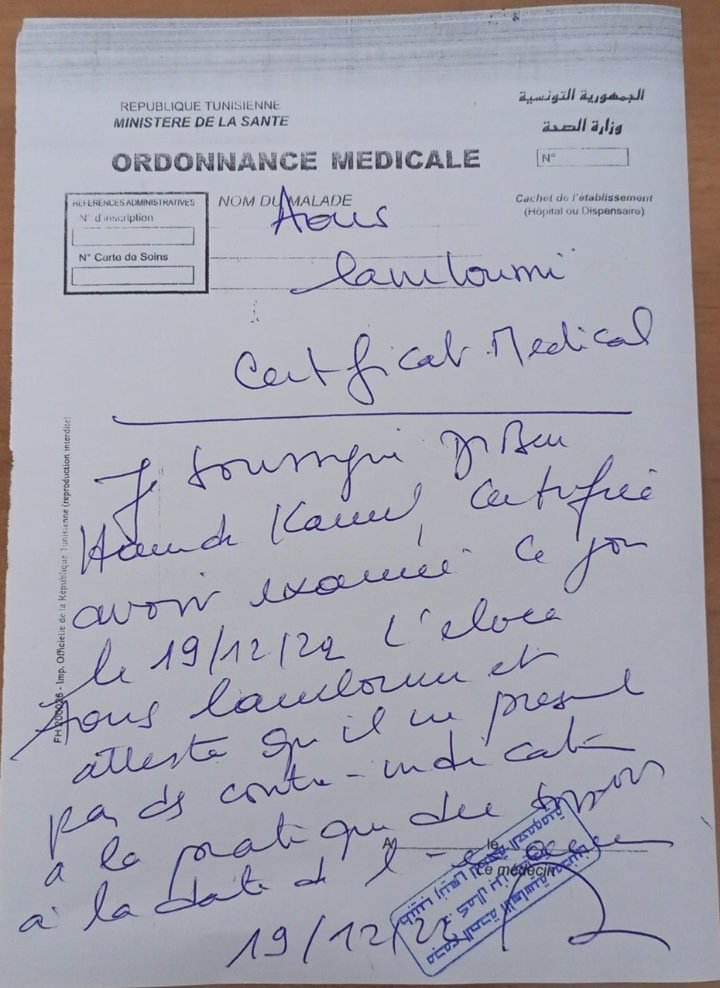 REPUBLIQUE TUNISIENNE
MINISTERE DE LA SANTE
الجمهورية التونسية
وزارة الصحة
ORDONNANCE MEDICALE
N°
REFERENCES ADMINISTRATIVES
N° d'inscription
N° Carte de Soins
NOM DU MALADE
Cachet de l'établissement
(Hôpital ou Dispensaire)
Aous
Lamloumi
Certificat Medical
Je soussigné Dr Ben
Hamda Kamel, Certifie
avoir examiné ce jour
le 19/12/22 L'eleve
Aous Lamloumi et
atteste qu'il ne presente
pas de contre-indication
à la pratique du
à la date de l'
A le
Le médecin
19/12/22
- Imp. Officielle de la République Tunisienne (reproduction interdite)